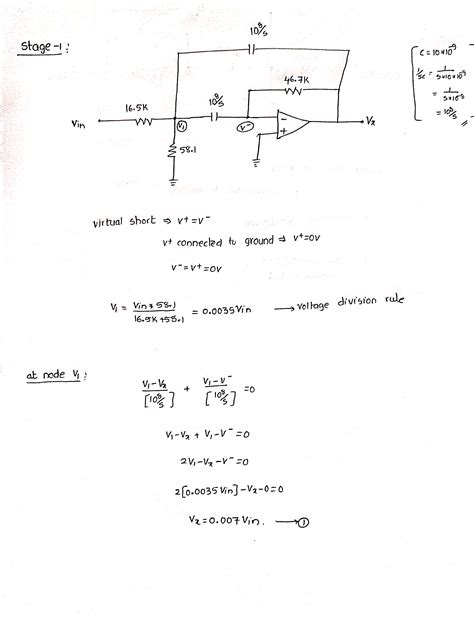 Stage-1:
10⁸/s
46.7K
16.5K
10⁸/s
Vin
V1
V⁻
-
+
V2
58.1
C = 10×10⁻⁹
1/sc = 1/s×10×10⁻⁹
= 1/s×10⁻⁸
= 10⁸/s
virtual short ⇒ V⁺=V⁻
V⁺ connected to ground ⇒ V⁺=0V
V⁻=V⁺=0V
V1 = Vin*58.1/16.5K+58.1 = 0.0035Vin → voltage division rule
at node V1:
V1-V2/[10⁸/s] + V1-V⁻/[10⁸/s] =0
V1-V2+V1-V⁻=0
2V1-V2-V⁻=0
2[0.0035Vin]-V2-0=0
V2=0.007Vin. → 1